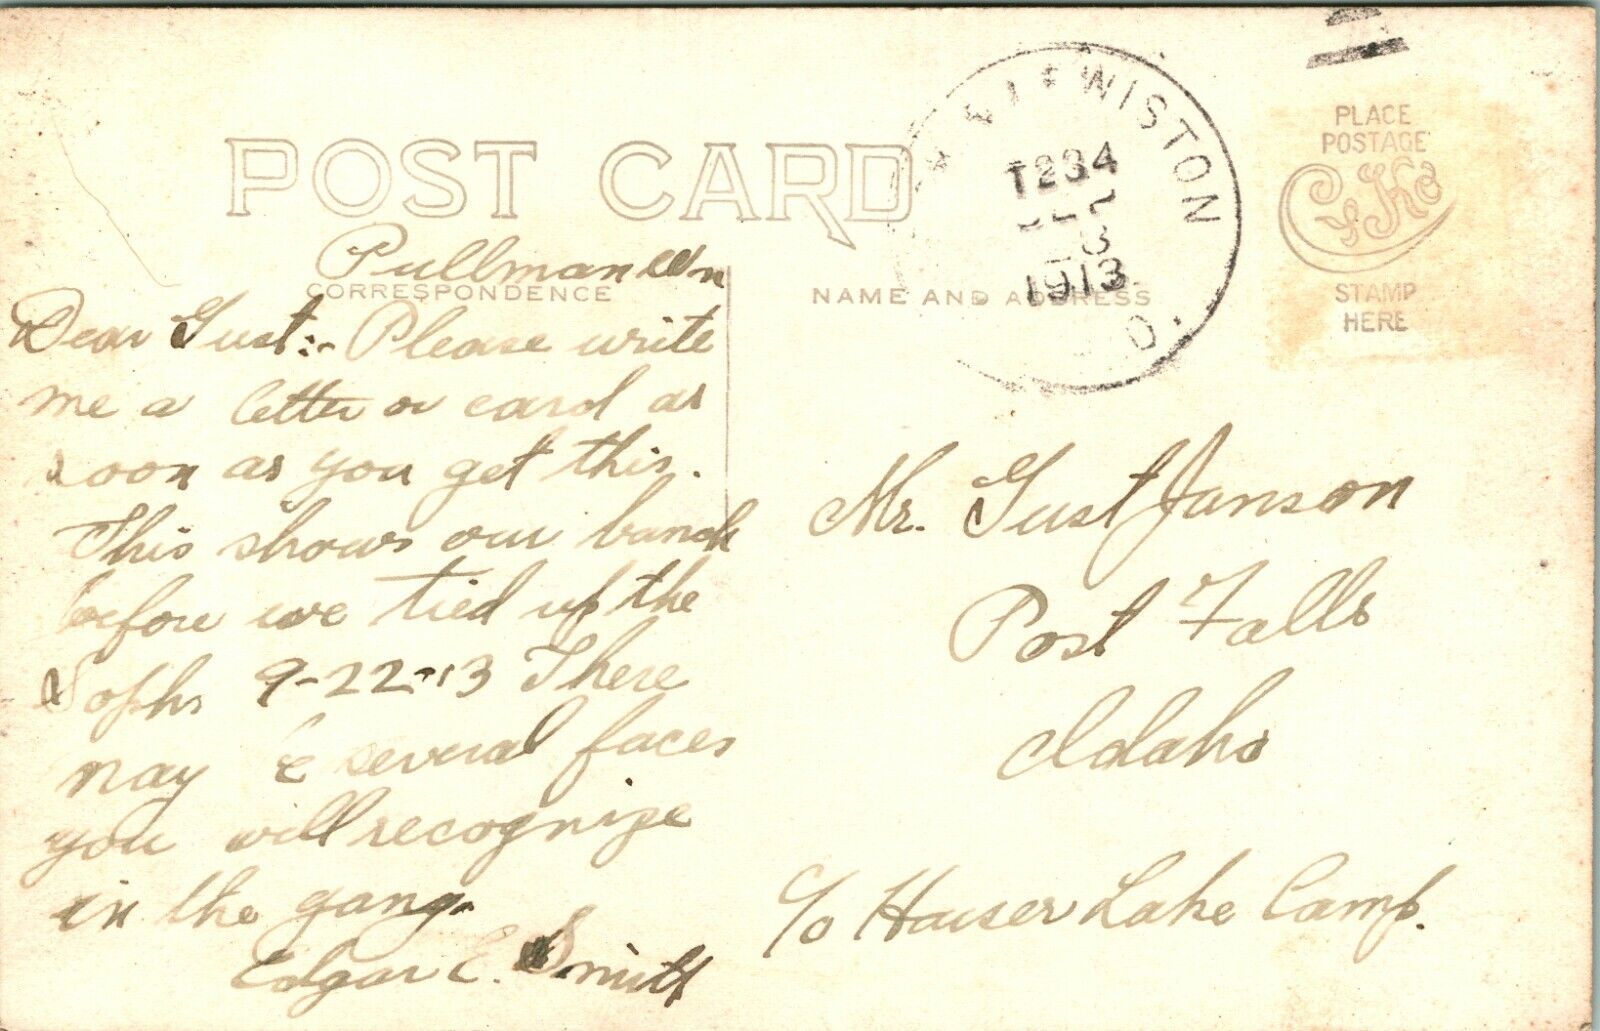 POST CARD
CORRESPONDENCE
NAME AND ADDRESS
PLACE
POSTAGE
CYKO
STAMP
HERE
WISTON
T234
1913
Pullman Wn
Dear Gust:- Please write
me a letter or card as
soon as you get this.
This shows our bunch
before we tied up the
Sophs 9-22-13 There
may be several faces
you will recognize
in the gang.
Edgar E. Smith
Mr. Gust Janson
Post Falls
Idaho
c/o Hauser Lake Camp.